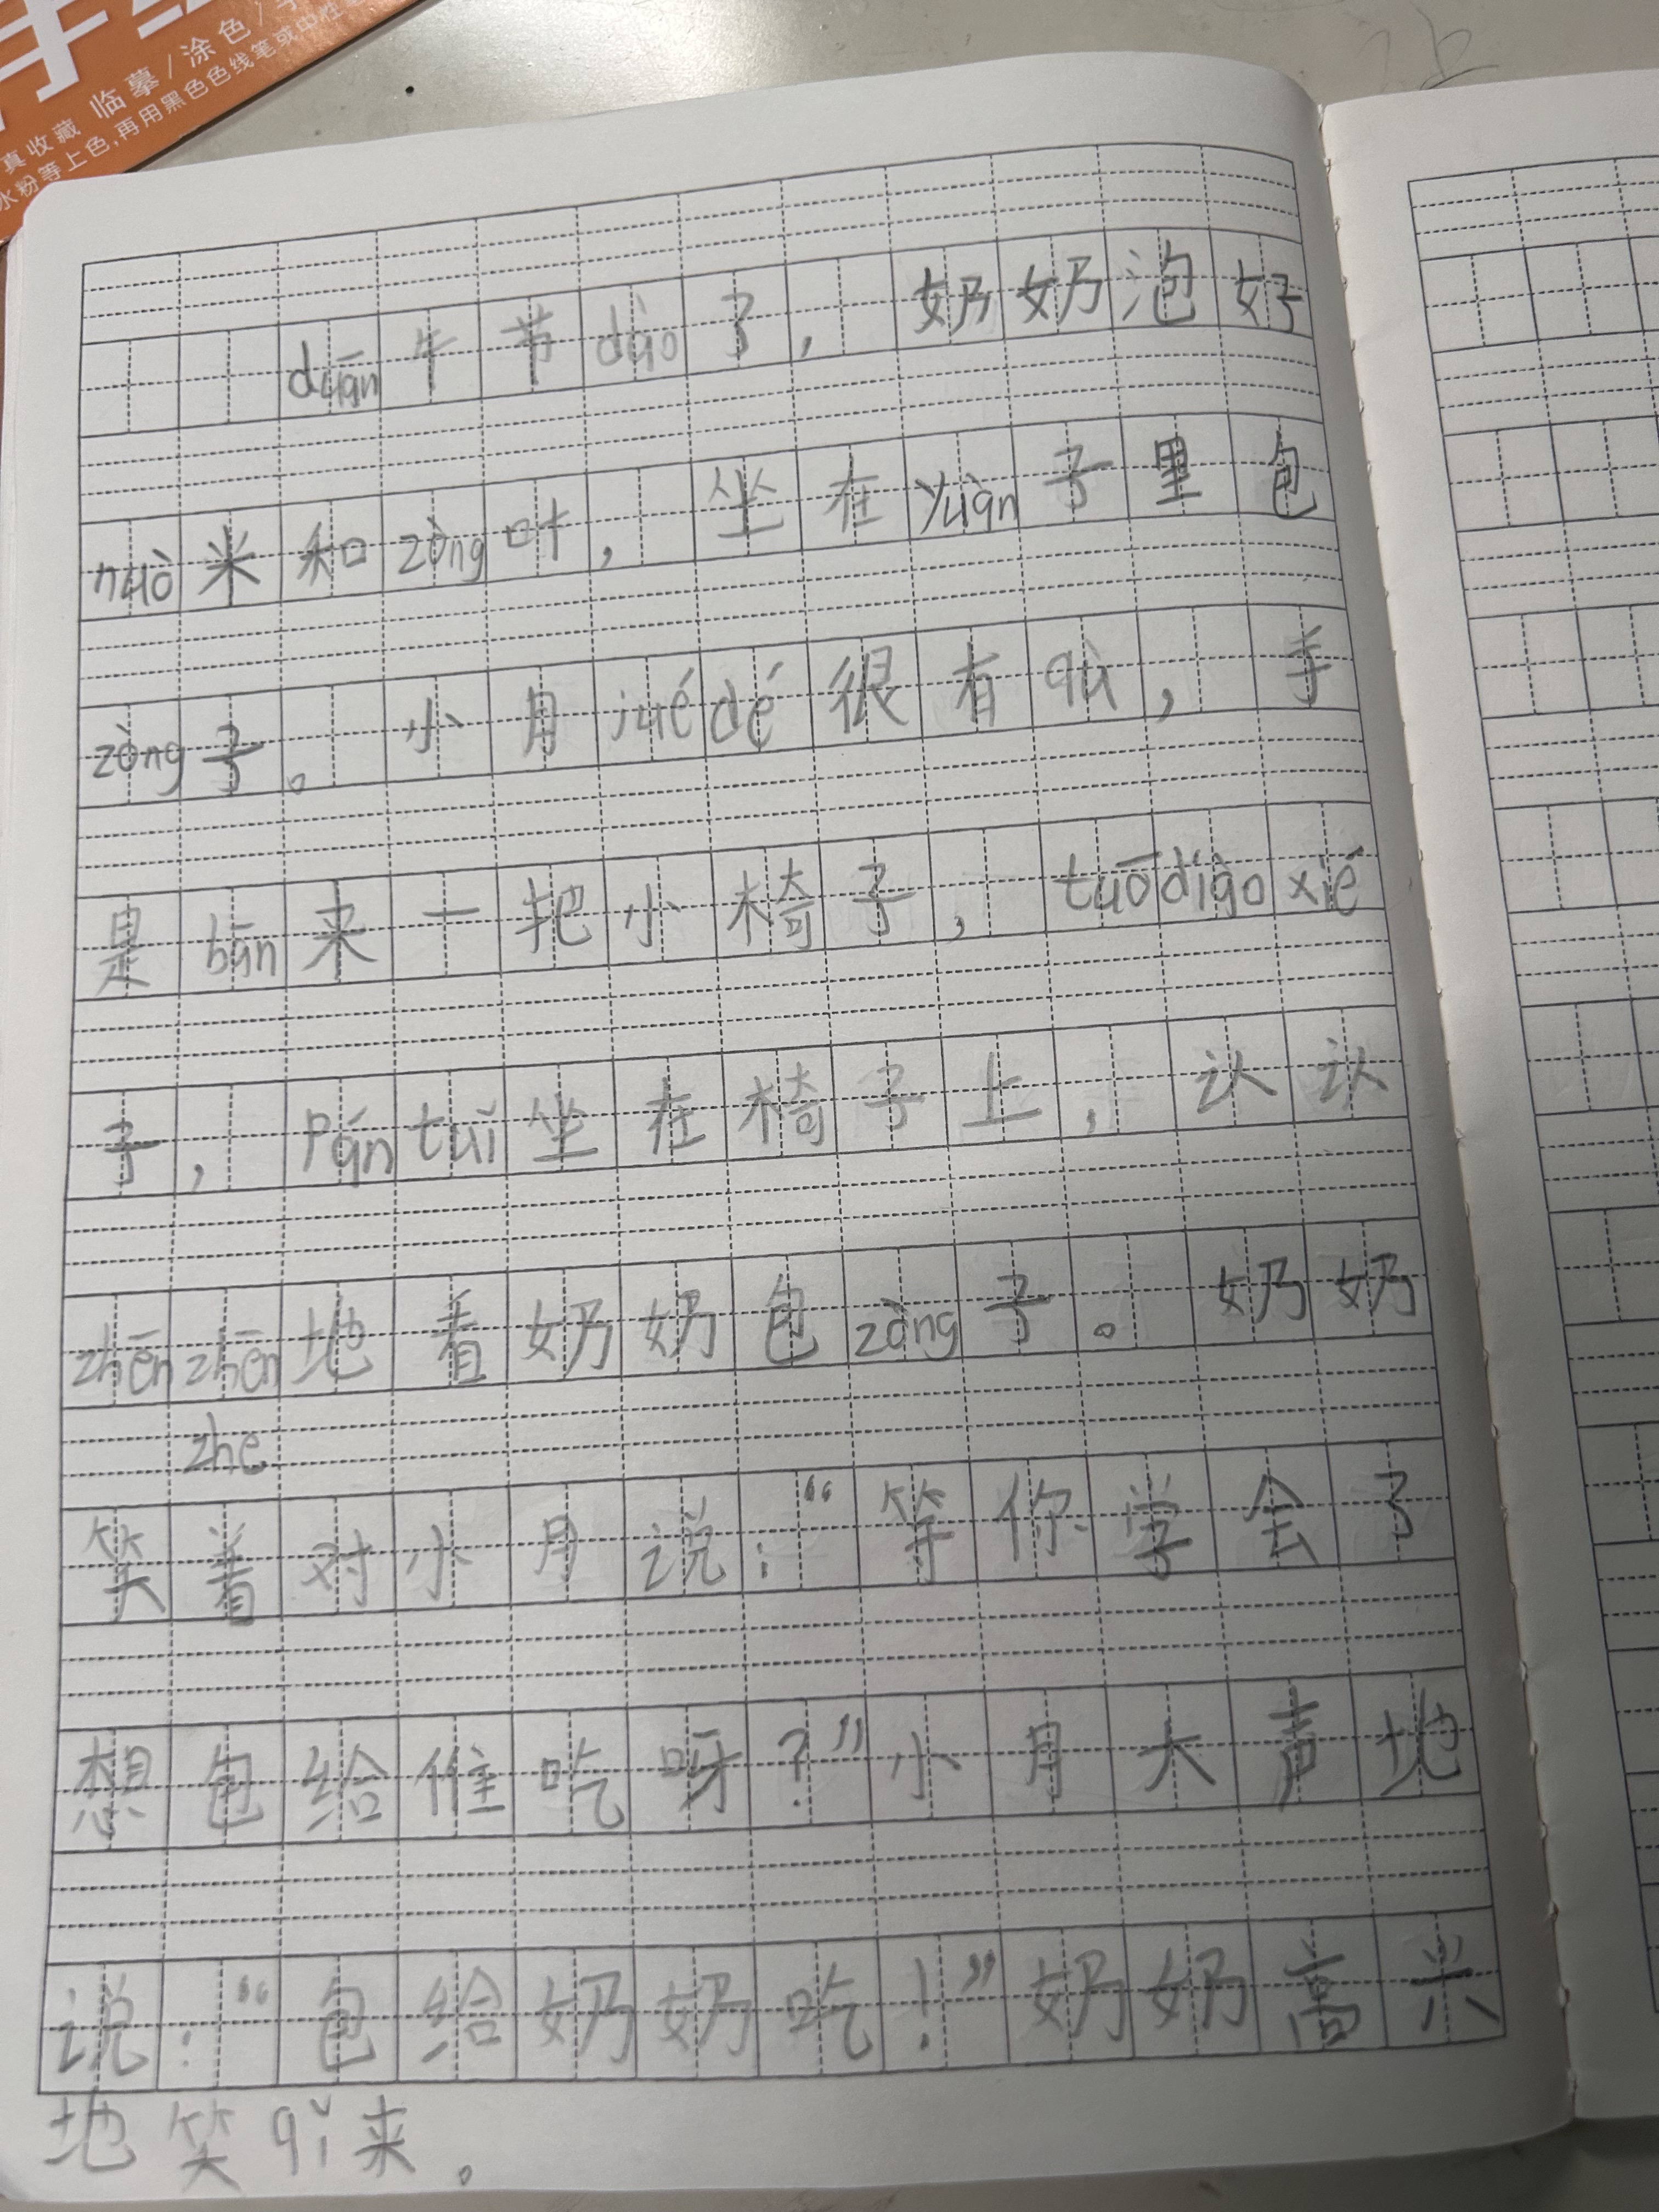 真收藏 临摹/涂色/
水粉等上色,再用黑色色线笔或中性
duān午节dào了，奶奶泡好
nuò米和zòng叶，坐在yuàn子里包
zòng子。小月juédé很有qù，于
是bān来一把小椅子，tuōdiàoxié
子，pántuǐ坐在椅子上，认认
zhēnzhēn地看奶奶包zòng子。奶奶
zhe
笑着对小月说：“等你学会了
想包给谁吃呀？”小月大声地
说：“包给奶奶吃！”奶奶高兴
地笑qǐ来。